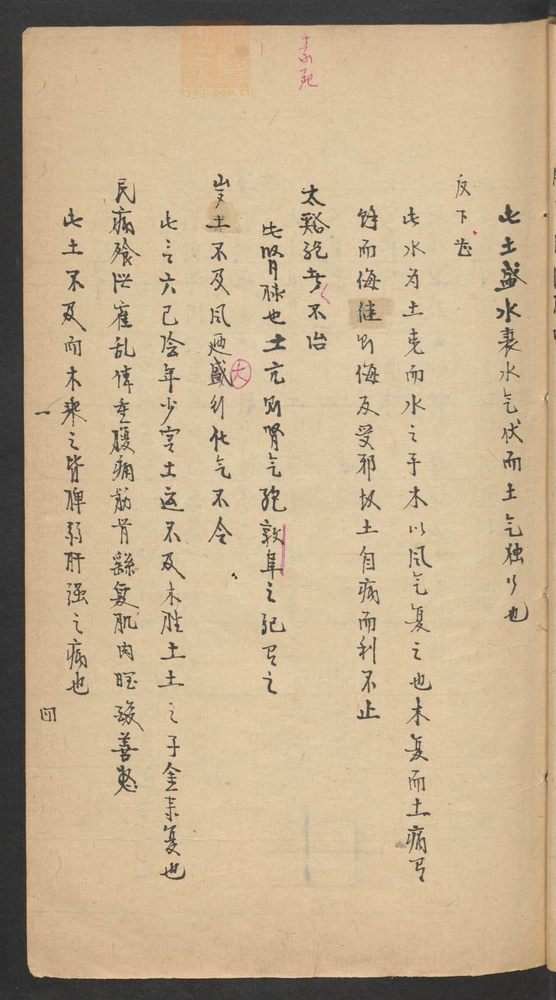 此土盛水衰水气伏而土气独行也
反下甚
此水为土克而水之子木以风气复之也木复而土病有
餘而侮佳则侮反受邪故土自病而利不止
太谿绝者不治
此肾脉也土亢则肾气绝敦阜之纪有之
岁土不及风廼盛大行化气不令
此言六己陰年少宫土运不及木胜土土之子金来复也
民病飱泄霍乱体重腹痛筋骨繇复肌肉瞤酸善怒
此土不及而木乘之皆脾弱肝强之病也
一
四